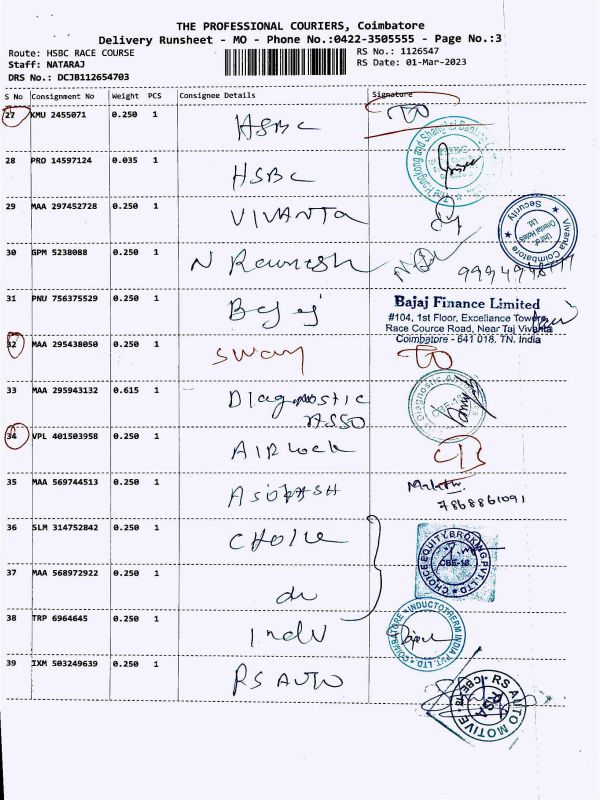 THE PROFESSIONAL COURIERS, Coimbatore
Delivery Runsheet - MO - Phone No.:0422-3505555 - Page No.:3
Route: HSBC RACE COURSE
RS No.: 1126547
Staff: NATARAJ
RS Date: 01-Mar-2023
DRS No.: DCJB112654703
S No Consignment No Weight PCS Consignee Details Signature
27 KMU 2455071 0.250 1 HSBC
28 PRO 14597124 0.035 1 HSBC
29 MAA 297452728 0.250 1 VIVANTA
Vivanta Coimbatore
Unit of Oriental Hotels Ltd.
Security
30 GPM 5238088 0.250 1 N
31 PNU 756375529 0.250 1 Bajaj
Bajaj Finance Limited
#104, 1st Floor, Excellance Towers,
Race Cource Road, Near Taj Vivanta
Coimbatore - 641 018. TN. India
32 MAA 295438050 0.250 1
33 MAA 295943132 0.615 1 Diagnostic
ASSO
34 VPL 401503958 0.250 1 AIRLock
35 MAA 569744513 0.250 1
7868861091
36 SLM 314752842 0.250 1 CHOICE
CHOICE EQUITY BROKING PVT. LTD
CBE-18
37 MAA 568972922 0.250 1 do
38 TRP 6964645 0.250 1 Indu
INDUCTOTHERM INDIA PVT. LTD. COIMBATORE
39 IXM 503249639 0.250 1 RS AUTO
RS AUTO MOTIVE
RSA